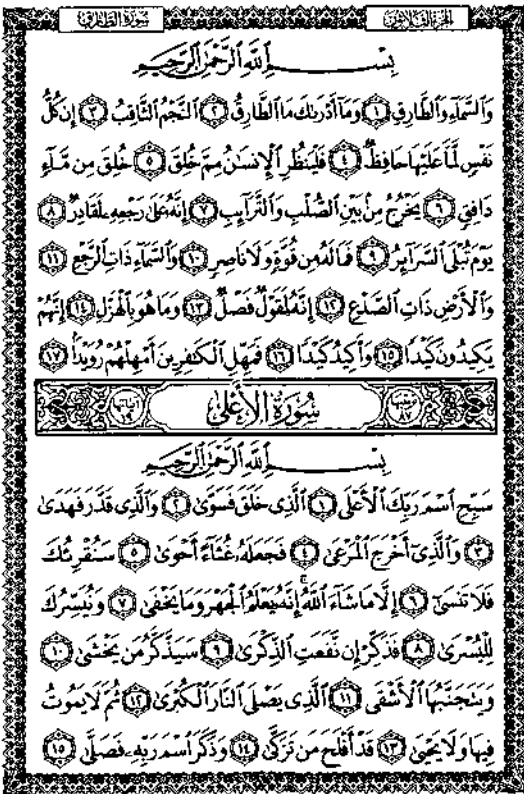 الجزء الثلاثون سورة الطارق
بِسْمِ ٱللَّهِ ٱلرَّحْمَٰنِ ٱلرَّحِيمِ
وَٱلسَّمَآءِ وَٱلطَّارِقِ ١ وَمَآ أَدْرَىٰكَ مَا ٱلطَّارِقُ ٢ ٱلنَّجْمُ ٱلثَّاقِبُ ٣ إِن كُلُّ
نَفْسٍ لَّمَّا عَلَيْهَا حَافِظٌ ٤ فَلْيَنظُرِ ٱلْإِنسَٰنُ مِمَّ خُلِقَ ٥ خُلِقَ مِن مَّآءٍ
دَافِقٍ ٦ يَخْرُجُ مِنۢ بَيْنِ ٱلصُّلْبِ وَٱلتَّرَآئِبِ ٧ إِنَّهُۥ عَلَىٰ رَجْعِهِۦ لَقَادِرٌ ٨
يَوْمَ تُبْلَى ٱلسَّرَآئِرُ ٩ فَمَا لَهُۥ مِن قُوَّةٍ وَلَا نَاصِرٍ ١٠ وَٱلسَّمَآءِ ذَاتِ ٱلرَّجْعِ ١١
وَٱلْأَرْضِ ذَاتِ ٱلصَّدْعِ ١٢ إِنَّهُۥ لَقَوْلٌ فَصْلٌ ١٣ وَمَا هُوَ بِٱلْهَزْلِ ١٤ إِنَّهُمْ
يَكِيدُونَ كَيْدًا ١٥ وَأَكِيدُ كَيْدًا ١٦ فَمَهِّلِ ٱلْكَٰفِرِينَ أَمْهِلْهُمْ رُوَيْدًۢا ١٧
سُورَةُ الْأَعْلَىٰ
بِسْمِ ٱللَّهِ ٱلرَّحْمَٰنِ ٱلرَّحِيمِ
سَبِّحِ ٱسْمَ رَبِّكَ ٱلْأَعْلَى ١ ٱلَّذِى خَلَقَ فَسَوَّىٰ ٢ وَٱلَّذِى قَدَّرَ فَهَدَىٰ
٣ وَٱلَّذِىٓ أَخْرَجَ ٱلْمَرْعَىٰ ٤ فَجَعَلَهُۥ غُثَآءً أَحْوَىٰ ٥ سَنُقْرِئُكَ
فَلَا تَنسَىٰٓ ٦ إِلَّا مَا شَآءَ ٱللَّهُ ۚ إِنَّهُۥ يَعْلَمُ ٱلْجَهْرَ وَمَا يَخْفَىٰ ٧ وَنُيَسِّرُكَ
لِلْيُسْرَىٰ ٨ فَذَكِّرْ إِن نَّفَعَتِ ٱلذِّكْرَىٰ ٩ سَيَذَّكَّرُ مَن يَخْشَىٰ ١٠
وَيَتَجَنَّبُهَا ٱلْأَشْقَى ١١ ٱلَّذِى يَصْلَى ٱلنَّارَ ٱلْكُبْرَىٰ ١٢ ثُمَّ لَا يَمُوتُ
فِيهَا وَلَا يَحْيَىٰ ١٣ قَدْ أَفْلَحَ مَن تَزَكَّىٰ ١٤ وَذَكَرَ ٱسْمَ رَبِّهِۦ فَصَلَّىٰ ١٥